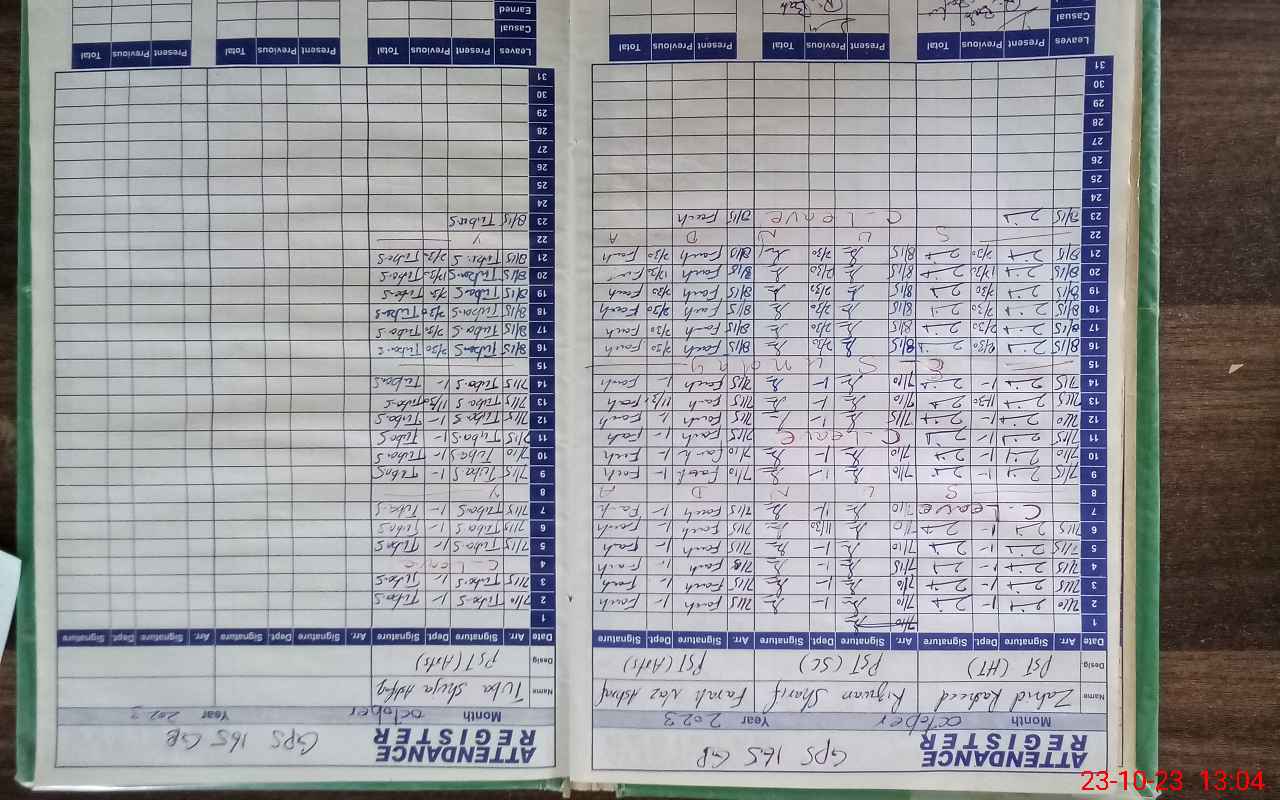 ATTENDANCE REGISTER GPS 165 GB
Month October Year 2023
Name Zahid Rasheed Rizwan Sharif Farah Naz Ashraf
Desig PST (HT) PST (SC) PST (Arts)
Date Arr. Signature Dept. Signature Arr. Signature Dept. Signature Arr. Signature Dept. Signature
1 7/10
2 7/10 1- 7/10 1- 7/15 Farah 1- Farah
3 7/15 1- 7/10 1- 7/15 Farah 1- Farah
4 7/15 1- 7/15 1- 7/15 Farah 1- Farah
5 7/15 1- 7/10 1- 7/15 Farah 1- Farah
6 7/15 1- 7/10 11/30 7/15 Farah 1- Farah
7 C-Leave 7/10 1- 7/15 Farah 1- Farah
8 S U N D A
9 7/15 1- 7/10 1- 7/10 Farah 1- Farah
10 7/10 1- 7/10 1- 7/10 Farah 1- Farah
11 7/15 1- C-Leave 7/15 Farah 1- Farah
12 7/10 1- 7/15 1- 7/15 Farah 1- Farah
13 7/15 11/30 7/10 1- 7/15 Farah 11/30 Farah
14 7/15 1- 7/10 1- 7/15 Farah 1- Farah
15 S u n d a y
16 8/15 2/30 8/15 2/30 8/15 Farah 2/30 Farah
17 8/15 2/30 8/15 2/30 8/15 Farah 2/30 Farah
18 8/15 2/30 8/15 2/30 8/15 Farah 2/30 Farah
19 8/15 2/30 8/15 2/30 8/15 Farah 2/30 Farah
20 8/15 12/30 8/15 2/30 8/15 Farah 12/30 Farah
21 8/15 2/30 8/15 2/30 8/15 Farah 2/30 Farah
22 S U N D A
23 8/15 C-Leave 8/15 Farah
24
25
26
27
28
29
30
31
Leaves Present Previous Total Present Previous Total Present Previous Total
Casual
ATTENDANCE REGISTER GPS 165 GB
Month October Year 2023
Name Tuba Shuja Ashfaq
Desig PST (Arts)
Date Arr. Signature Dept. Signature Arr. Signature Dept. Signature Arr. Signature Dept. Signature
1
2 7/10 Tuba S 1- Tuba S
3 7/15 Tuba S 1- Tuba S
4 C-Leave
5 7/15 Tuba S 1- Tuba S
6 7/15 Tuba S 1- Tuba S
7 7/15 Tuba S 1- Tuba S
8 Y
9 7/15 Tuba S 1- Tuba S
10 7/10 Tuba S 1- Tuba S
11 7/15 Tuba S 1- Tuba S
12 7/15 Tuba S 1- Tuba S
13 7/15 Tuba S 11/30 Tuba S
14 7/15 Tuba S 1- Tuba S
15
16 8/15 Tuba S 2/30 Tuba S
17 8/15 Tuba S 2/30 Tuba S
18 8/15 Tuba S 2/30 Tuba S
19 8/15 Tuba S 2/30 Tuba S
20 8/15 Tuba S 12/30 Tuba S
21 8/15 Tuba S 2/30 Tuba S
22 Y
23 8/15 Tuba S
24
25
26
27
28
29
30
31
Leaves Present Previous Total Present Previous Total Present Previous Total
Casual
Earned
23-10-23 13:04